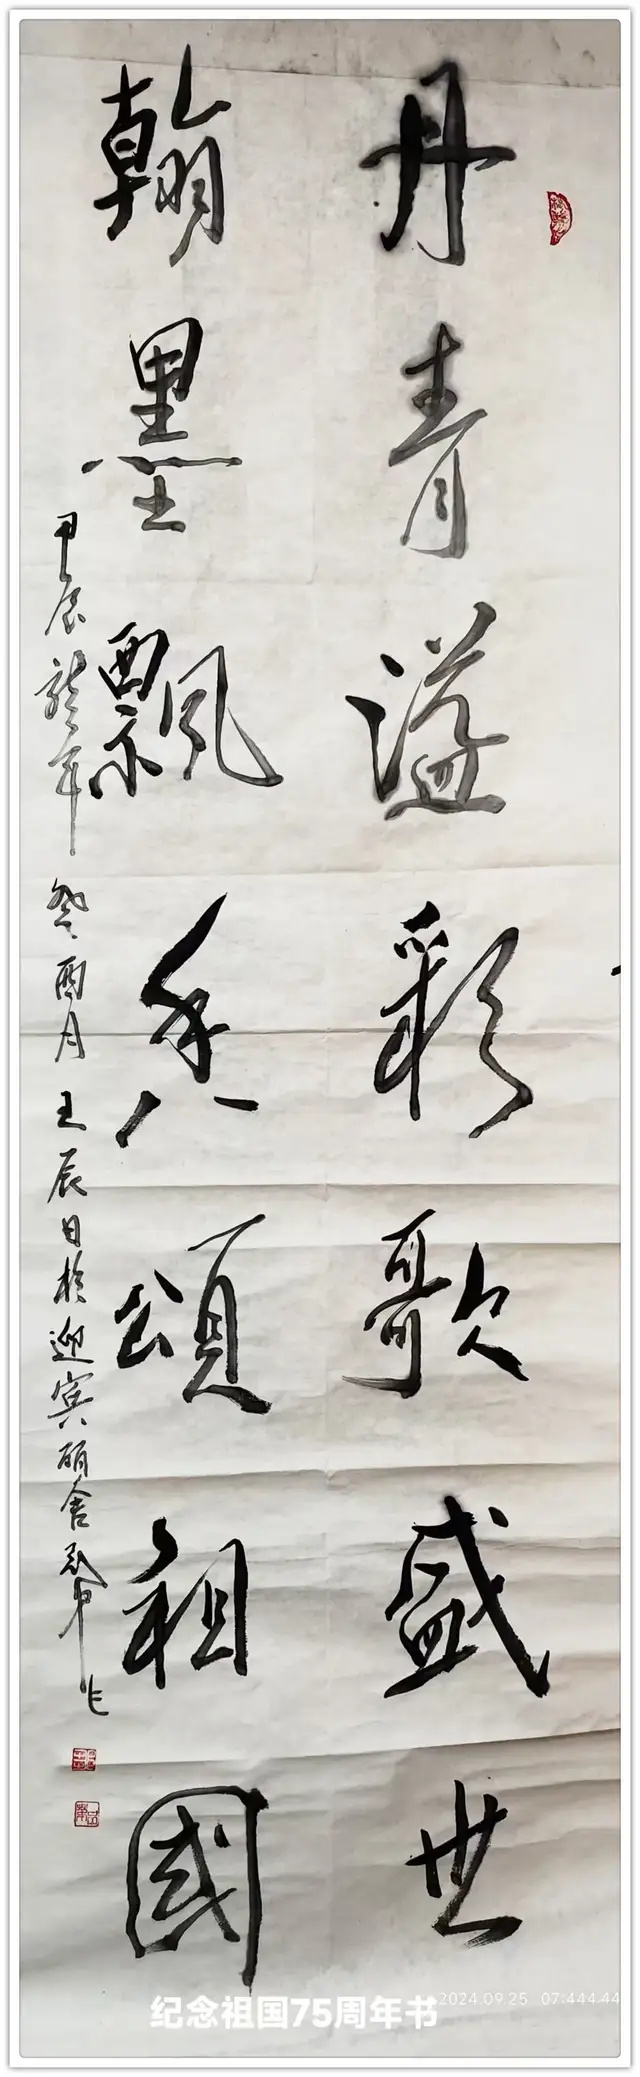 丹青溢彩歌盛世
翰墨飘香頌祖國
甲辰龍年癸酉月壬辰日於迎賓陋舍
纪念祖国75周年书
2024.09.25 07:444.44